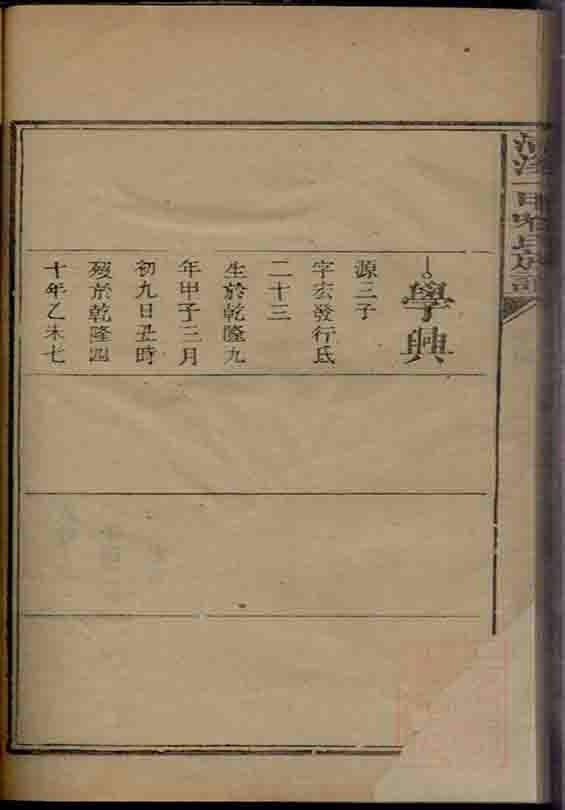 學興
源三子
字宏發行氐
二十三
生於乾隆九
年甲子三月
初九日丑時
歿於乾隆四
十年乙未七